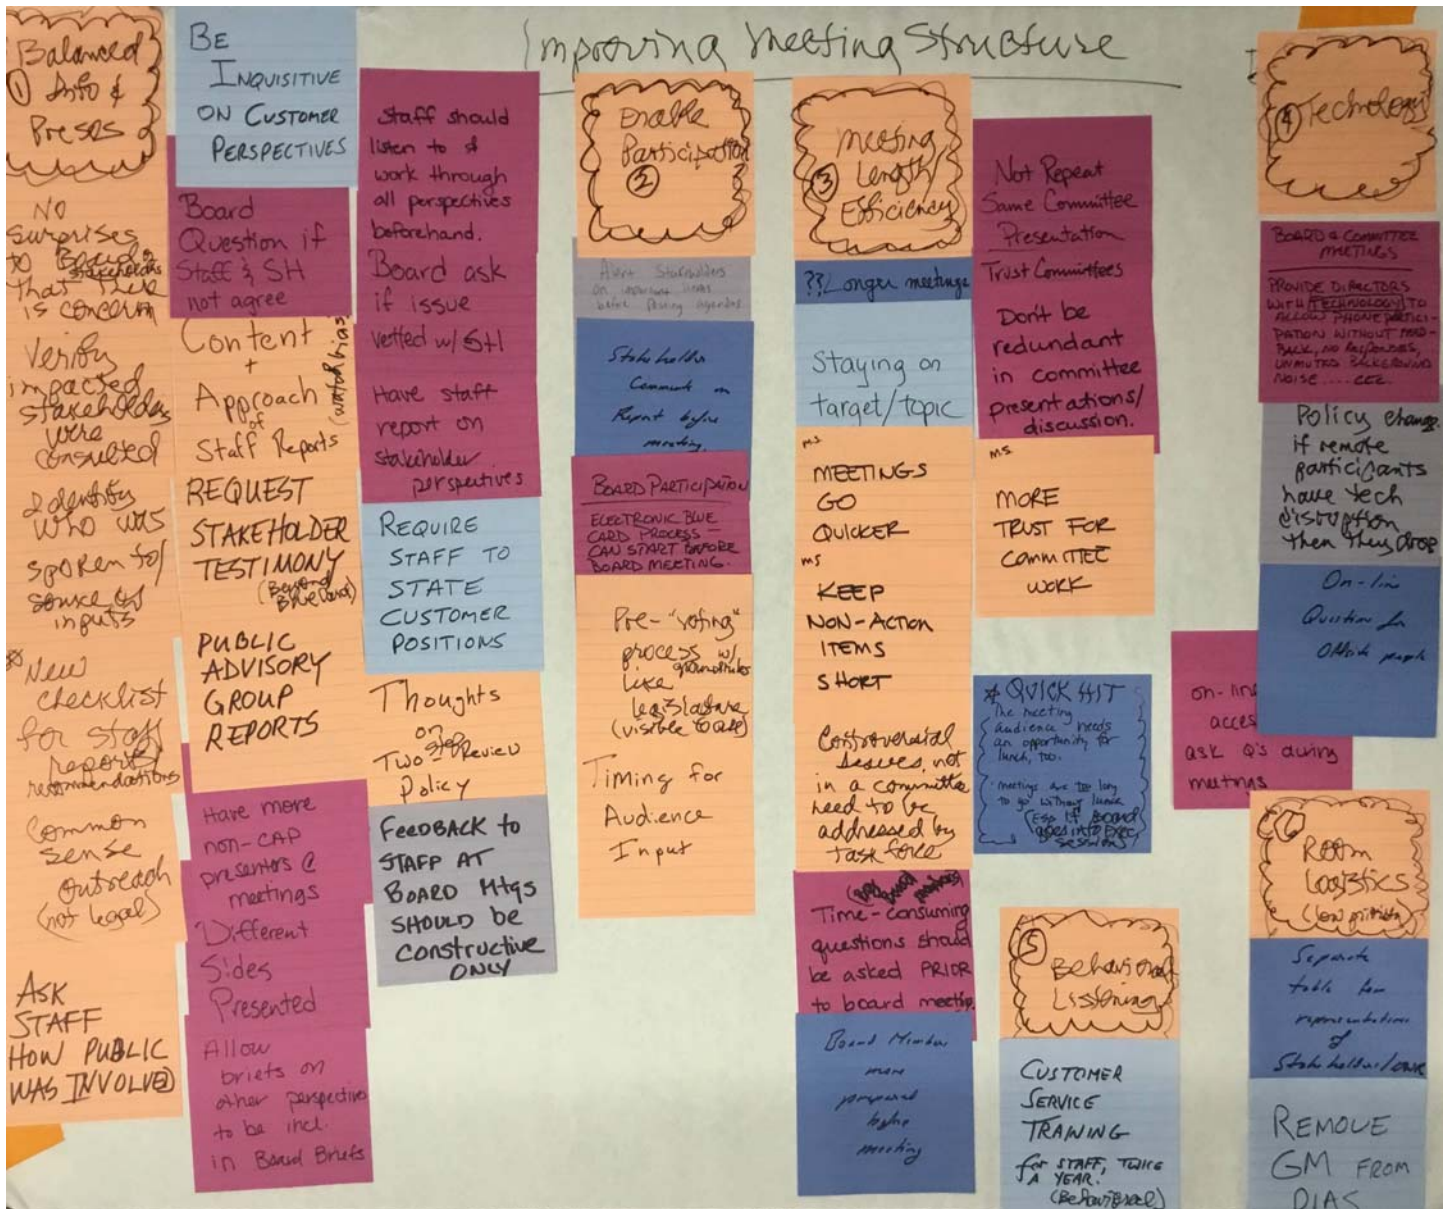 Improving Meeting Structure
Balanced
① Info &
Preses
No
surprises
to Board &
stakeholders
that there
is concern
Verify
impacted
stakeholders
were
consulted
Identify
who was
spoken to/
source of
inputs
New
checklist
for staff
reports/
recommendations
Common
sense
outreach
(not legal)
ASK
STAFF
HOW PUBLIC
WAS INVOLVED
BE
INQUISITIVE
ON CUSTOMER
PERSPECTIVES
Board
Question if
Staff & SH
not agree
Content
+
Approach
of
Staff Reports
(watch bias)
REQUEST
STAKEHOLDER
TESTIMONY
(Beyond
Blue Card)
PUBLIC
ADVISORY
GROUP
REPORTS
Have more
non-CAP
presenters @
meetings
Different
Sides
Presented
Allow
briefs on
other perspectives
to be incl.
in Board Briefs
Staff should
listen to &
work through
all perspectives
beforehand.
Board ask
if issue
vetted w/ SH
Have staff
report on
stakeholder
perspectives
REQUIRE
STAFF TO
STATE
CUSTOMER
POSITIONS
Thoughts
on
Two step Review
Policy
FEEDBACK to
STAFF AT
BOARD Mtgs
SHOULD be
constructive
ONLY
Enable
Participation
②
Alert Stakeholders
on important items
before posting agendas
Stakeholder
Comment on
Report before
meeting.
BOARD PARTICIPATION
ELECTRONIC BLUE
CARD PROCESS –
CAN START BEFORE
BOARD MEETING.
Pre-"voting"
process w/
groundrules
like
legislature
(visible to all)
Timing for
Audience
Input
Meeting
③ Length/
Efficiency
??Longer meetings
Staying on
target/topic
m.s.
MEETINGS
GO
QUICKER
ms
KEEP
NON-ACTION
ITEMS
SHORT
Controversial
issues, not
in a committee
need to be
addressed by
task force
(by board members)
Time-consuming
questions should
be asked PRIOR
to board meeting.
Board Member
more
prepared
before
meeting
Not Repeat
Same Committee
Presentation
Trust Committees
Don't be
redundant
in committee
presentations/
discussion.
m.s.
MORE
TRUST FOR
COMMITTEE
WORK
* QUICK HIT
The meeting
audience needs
an opportunity for
lunch, too.
· meetings are too long
to go without lunch
(Esp if Board
goes into exec
session)
⑤
Behavioral
Listening
CUSTOMER
SERVICE
TRAINING
for STAFF, TWICE
A YEAR.
(Behavioral)
④ Technology
BOARD & COMMITTEE
MEETINGS
PROVIDE DIRECTORS
WITH TECHNOLOGY TO
ALLOW PHONE PARTICI-
PATION WITHOUT FEED-
BACK, NO RESPONSES,
UNMUTED BACKGROUND
NOISE ....
Policy change.
if remote
participants
have tech
disruption
then they drop
On-line
Question for
Offsite people
on-line
access
ask Q's during
meetings
Room
Logistics
(low priority)
Separate
table for
representatives
of
Stakeholders/
REMOVE
GM FROM
DIAS